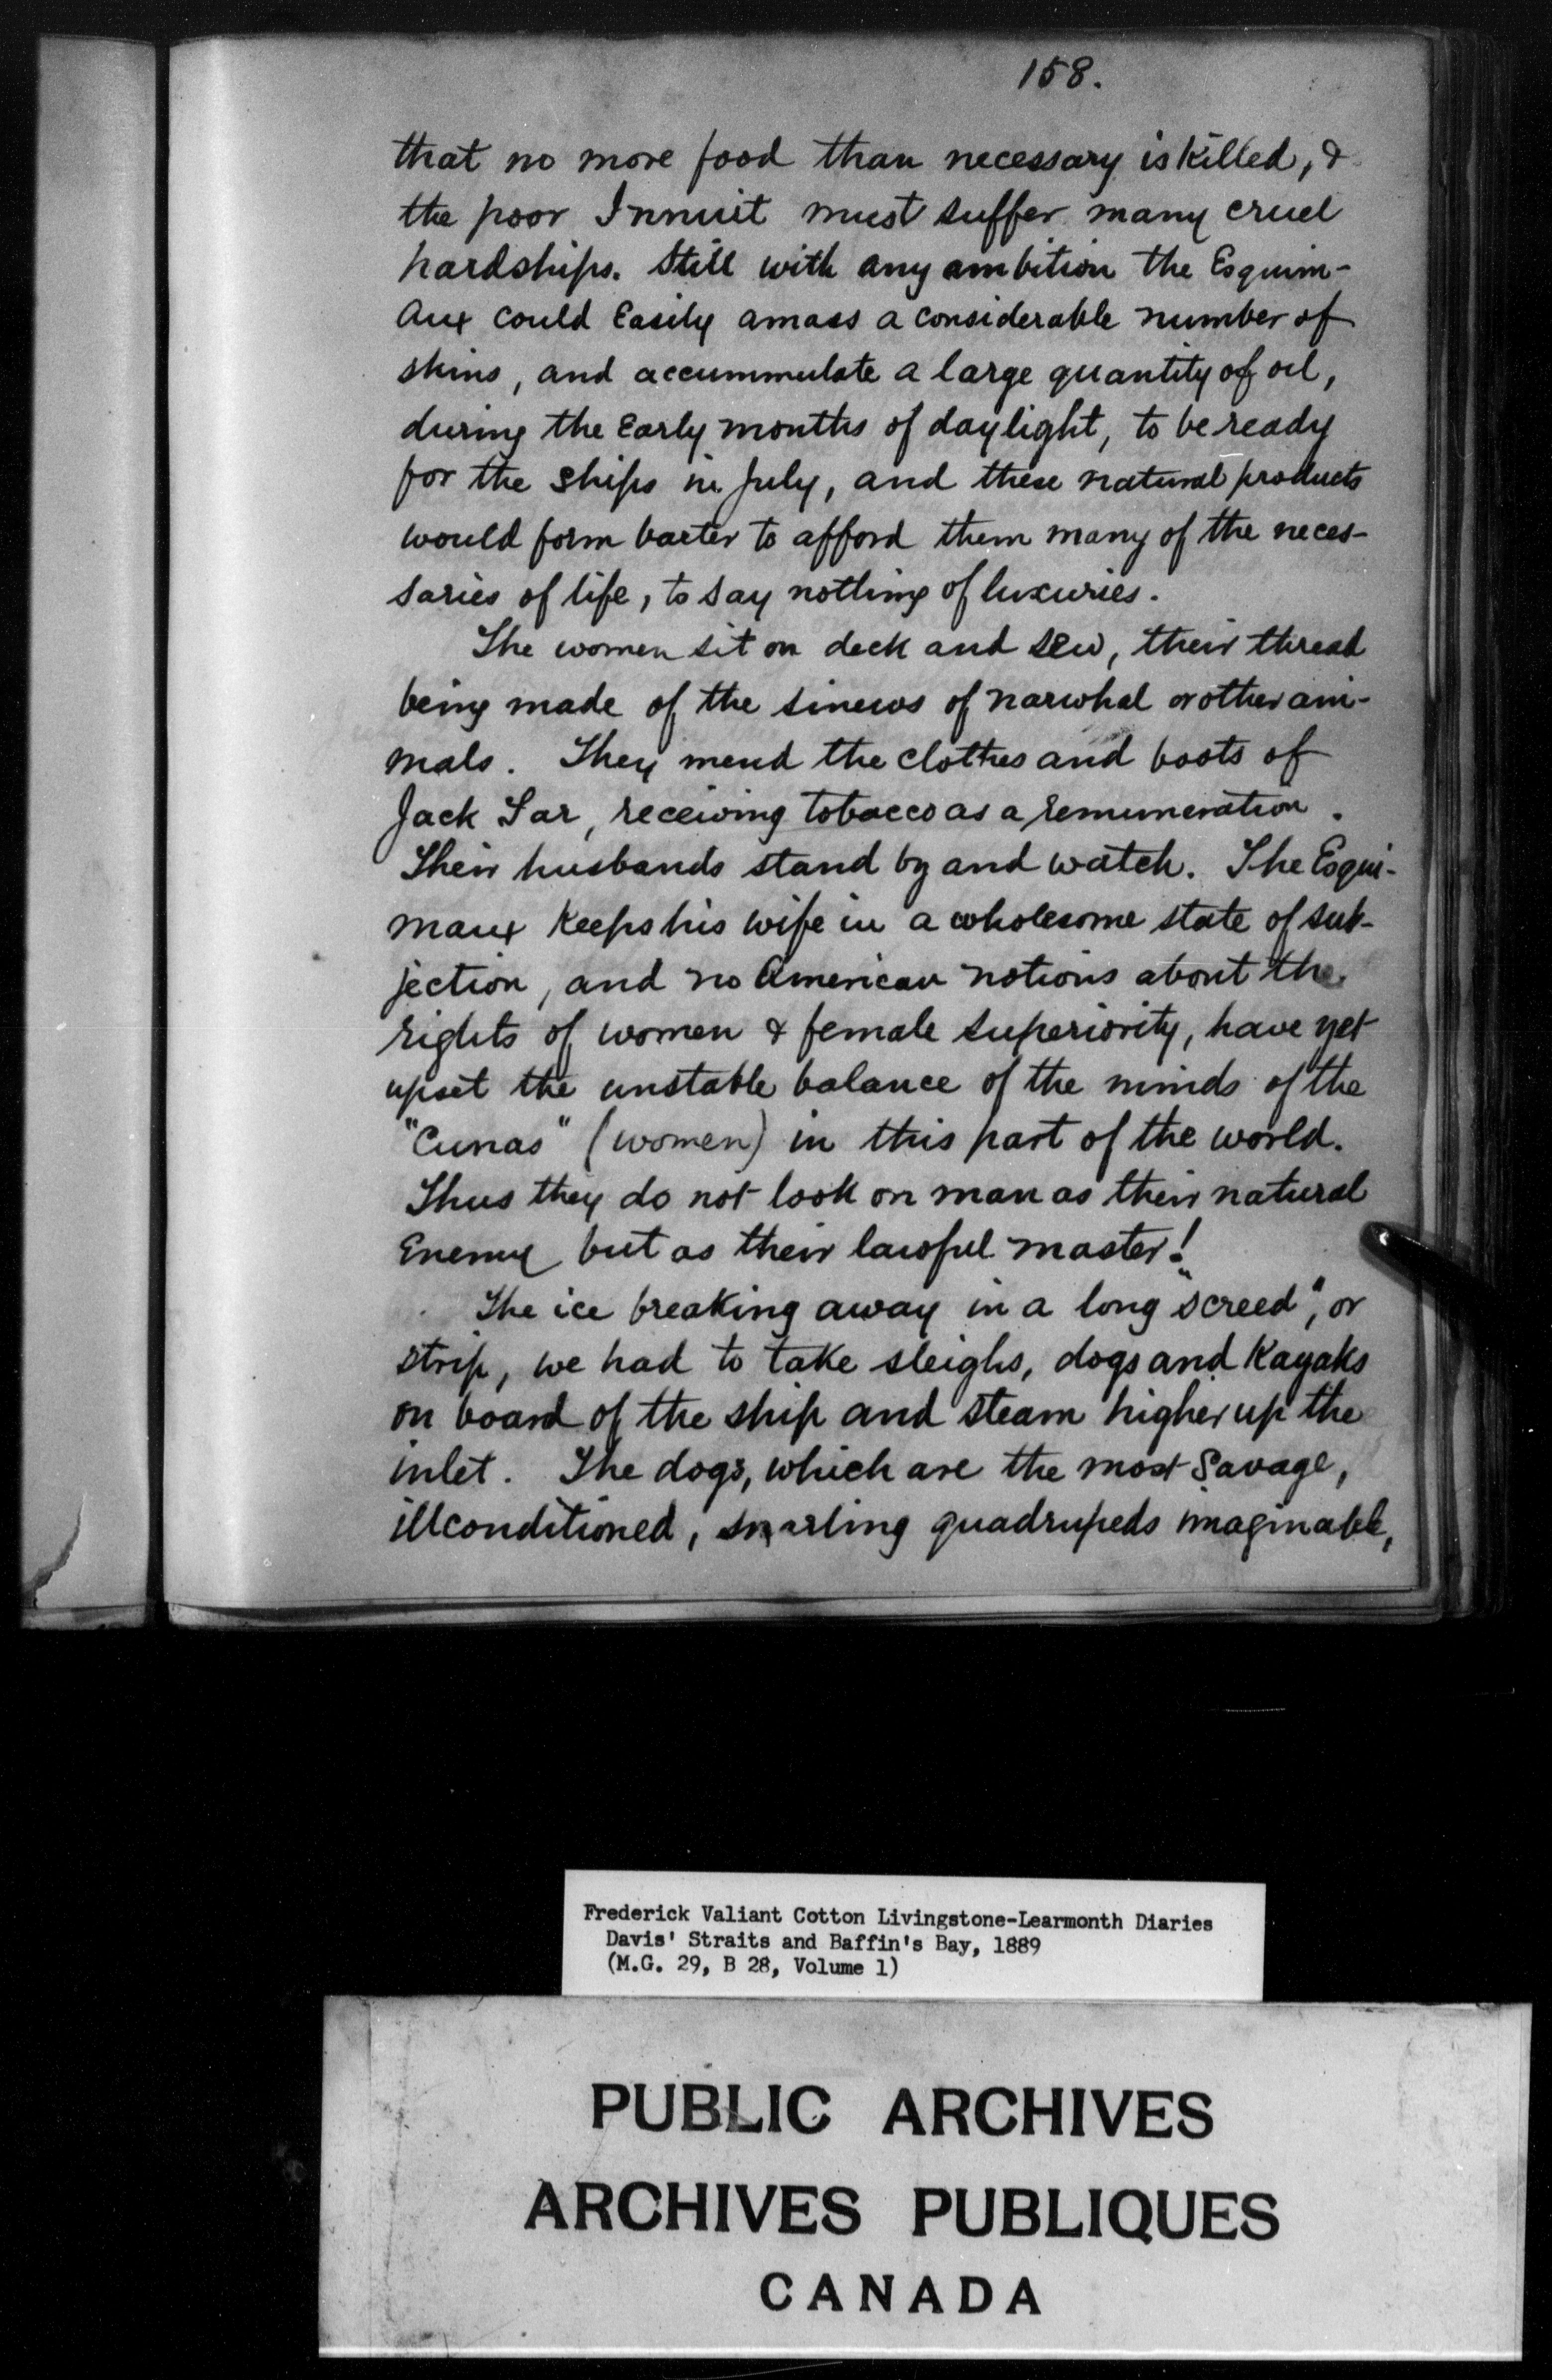 158.
that no more food than necessary is killed, &
the poor Innuit must suffer many cruel
hardships. Still with any ambition the Esquim-
aux could Easily amass a considerable number of
skins, and accummulate a large quantity of oil,
during the Early months of daylight, to be ready
for the ships in July, and these natural products
would form barter to afford them many of the neces-
saries of life, to say nothing of luxuries.
The women sit on deck and sew, their thread
being made of the sinews of narwhal or other ani-
mals. They mend the clothes and boots of
Jack Tar, receiving tobacco as a remuneration.
Their husbands stand by and watch. The Esqui-
maux keeps his wife in a wholesome state of sub-
jection, and no American notions about the
rights of women & female superiority, have yet
upset the unstable balance of the minds of the
"Cunas" (women) in this part of the world.
Thus they do not look on man as their natural
Enemy but as their lawful master!
The ice breaking away in a long "screed", or
strip, we had to take sleighs, dogs and Kayaks
on board of the ship and steam higher up the
inlet. The dogs, which are the most savage,
illconditioned, snarling quadrupeds imaginable,
Frederick Valiant Cotton Livingstone-Learmonth Diaries
Davis' Straits and Baffin's Bay, 1889
(M.G. 29, B 28, Volume 1)
PUBLIC ARCHIVES
ARCHIVES PUBLIQUES
CANADA